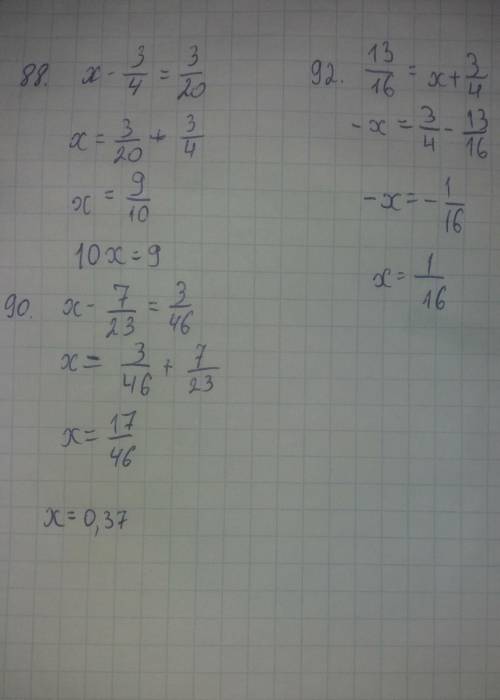 88. x - 3/4 = 3/20
x = 3/20 + 3/4
x = 9/10
10x = 9
90. x - 7/23 = 3/46
x = 3/46 + 7/23
x = 17/46
x = 0,37
92. 13/16 = x + 3/4
-x = 3/4 - 13/16
-x = -1/16
x = 1/16